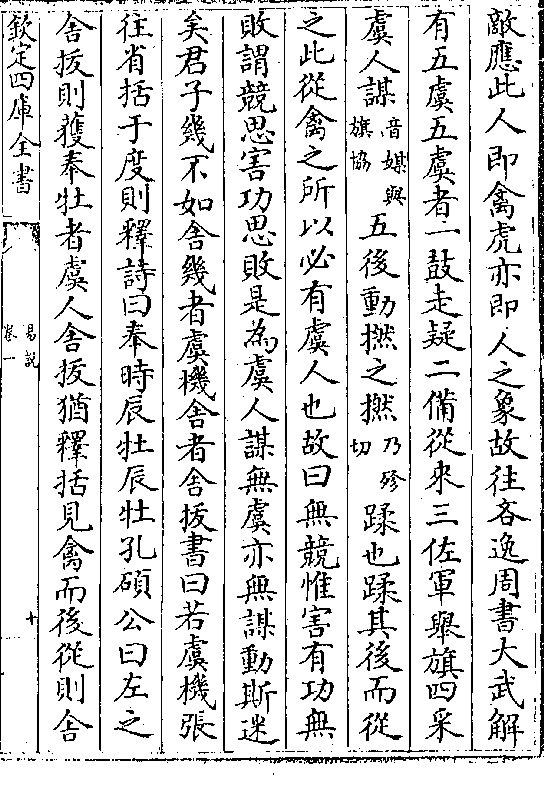 敵應此人即禽虎亦即人之象故往吝逸周書大武解
有五虞五虞者一鼓走疑二備從來三佐軍舉旗四采
虞人謀音媒與旗協五後動撚之撚乃殄切蹂也蹂其後而從
之此從禽之所以必有虞人也故曰無競惟害有功無
敗謂競思害功思敗是為虞人謀無虞亦無謀動斯迷
矣君子幾不如舍幾者虞機舍者舍拔書曰若虞機張
往省括于度則釋詩曰奉時辰牡辰牡孔碩公曰左之
舍拔則獲奉牡者虞人舍拔猶釋括見禽而後從則舍
欽定四庫全書
易說
卷一
十